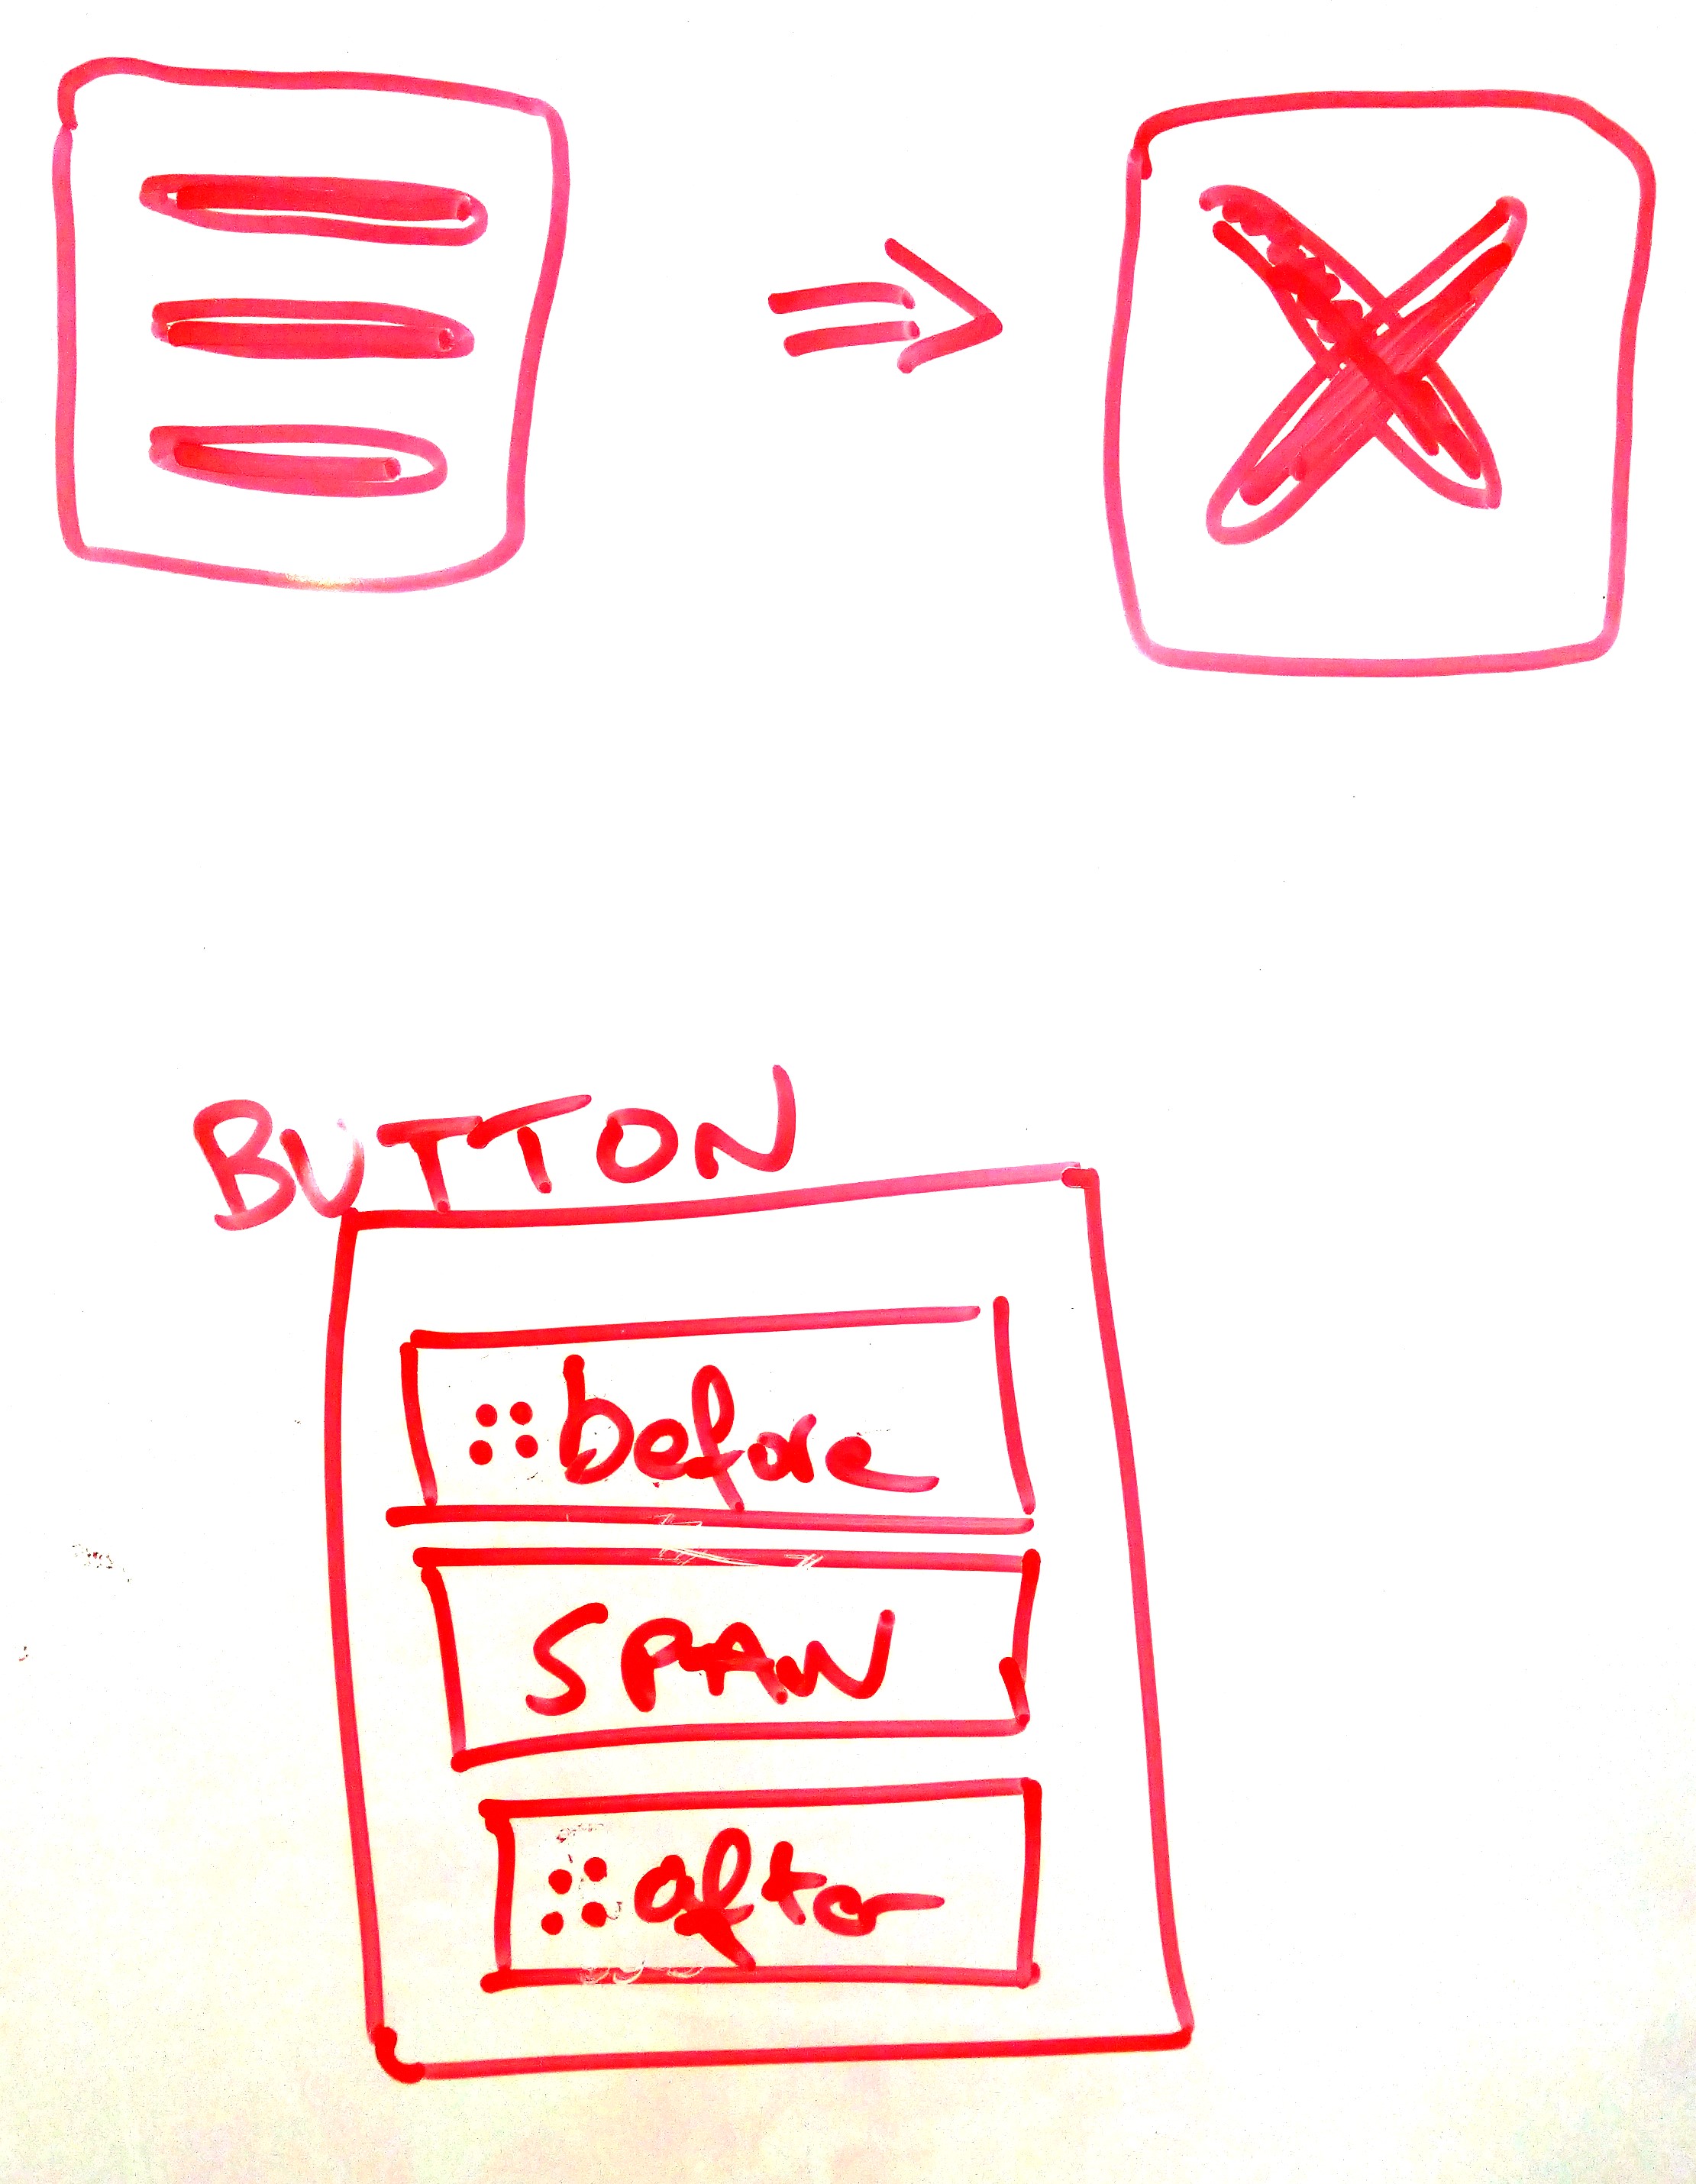 BUTTON
::before
SPAN
::after